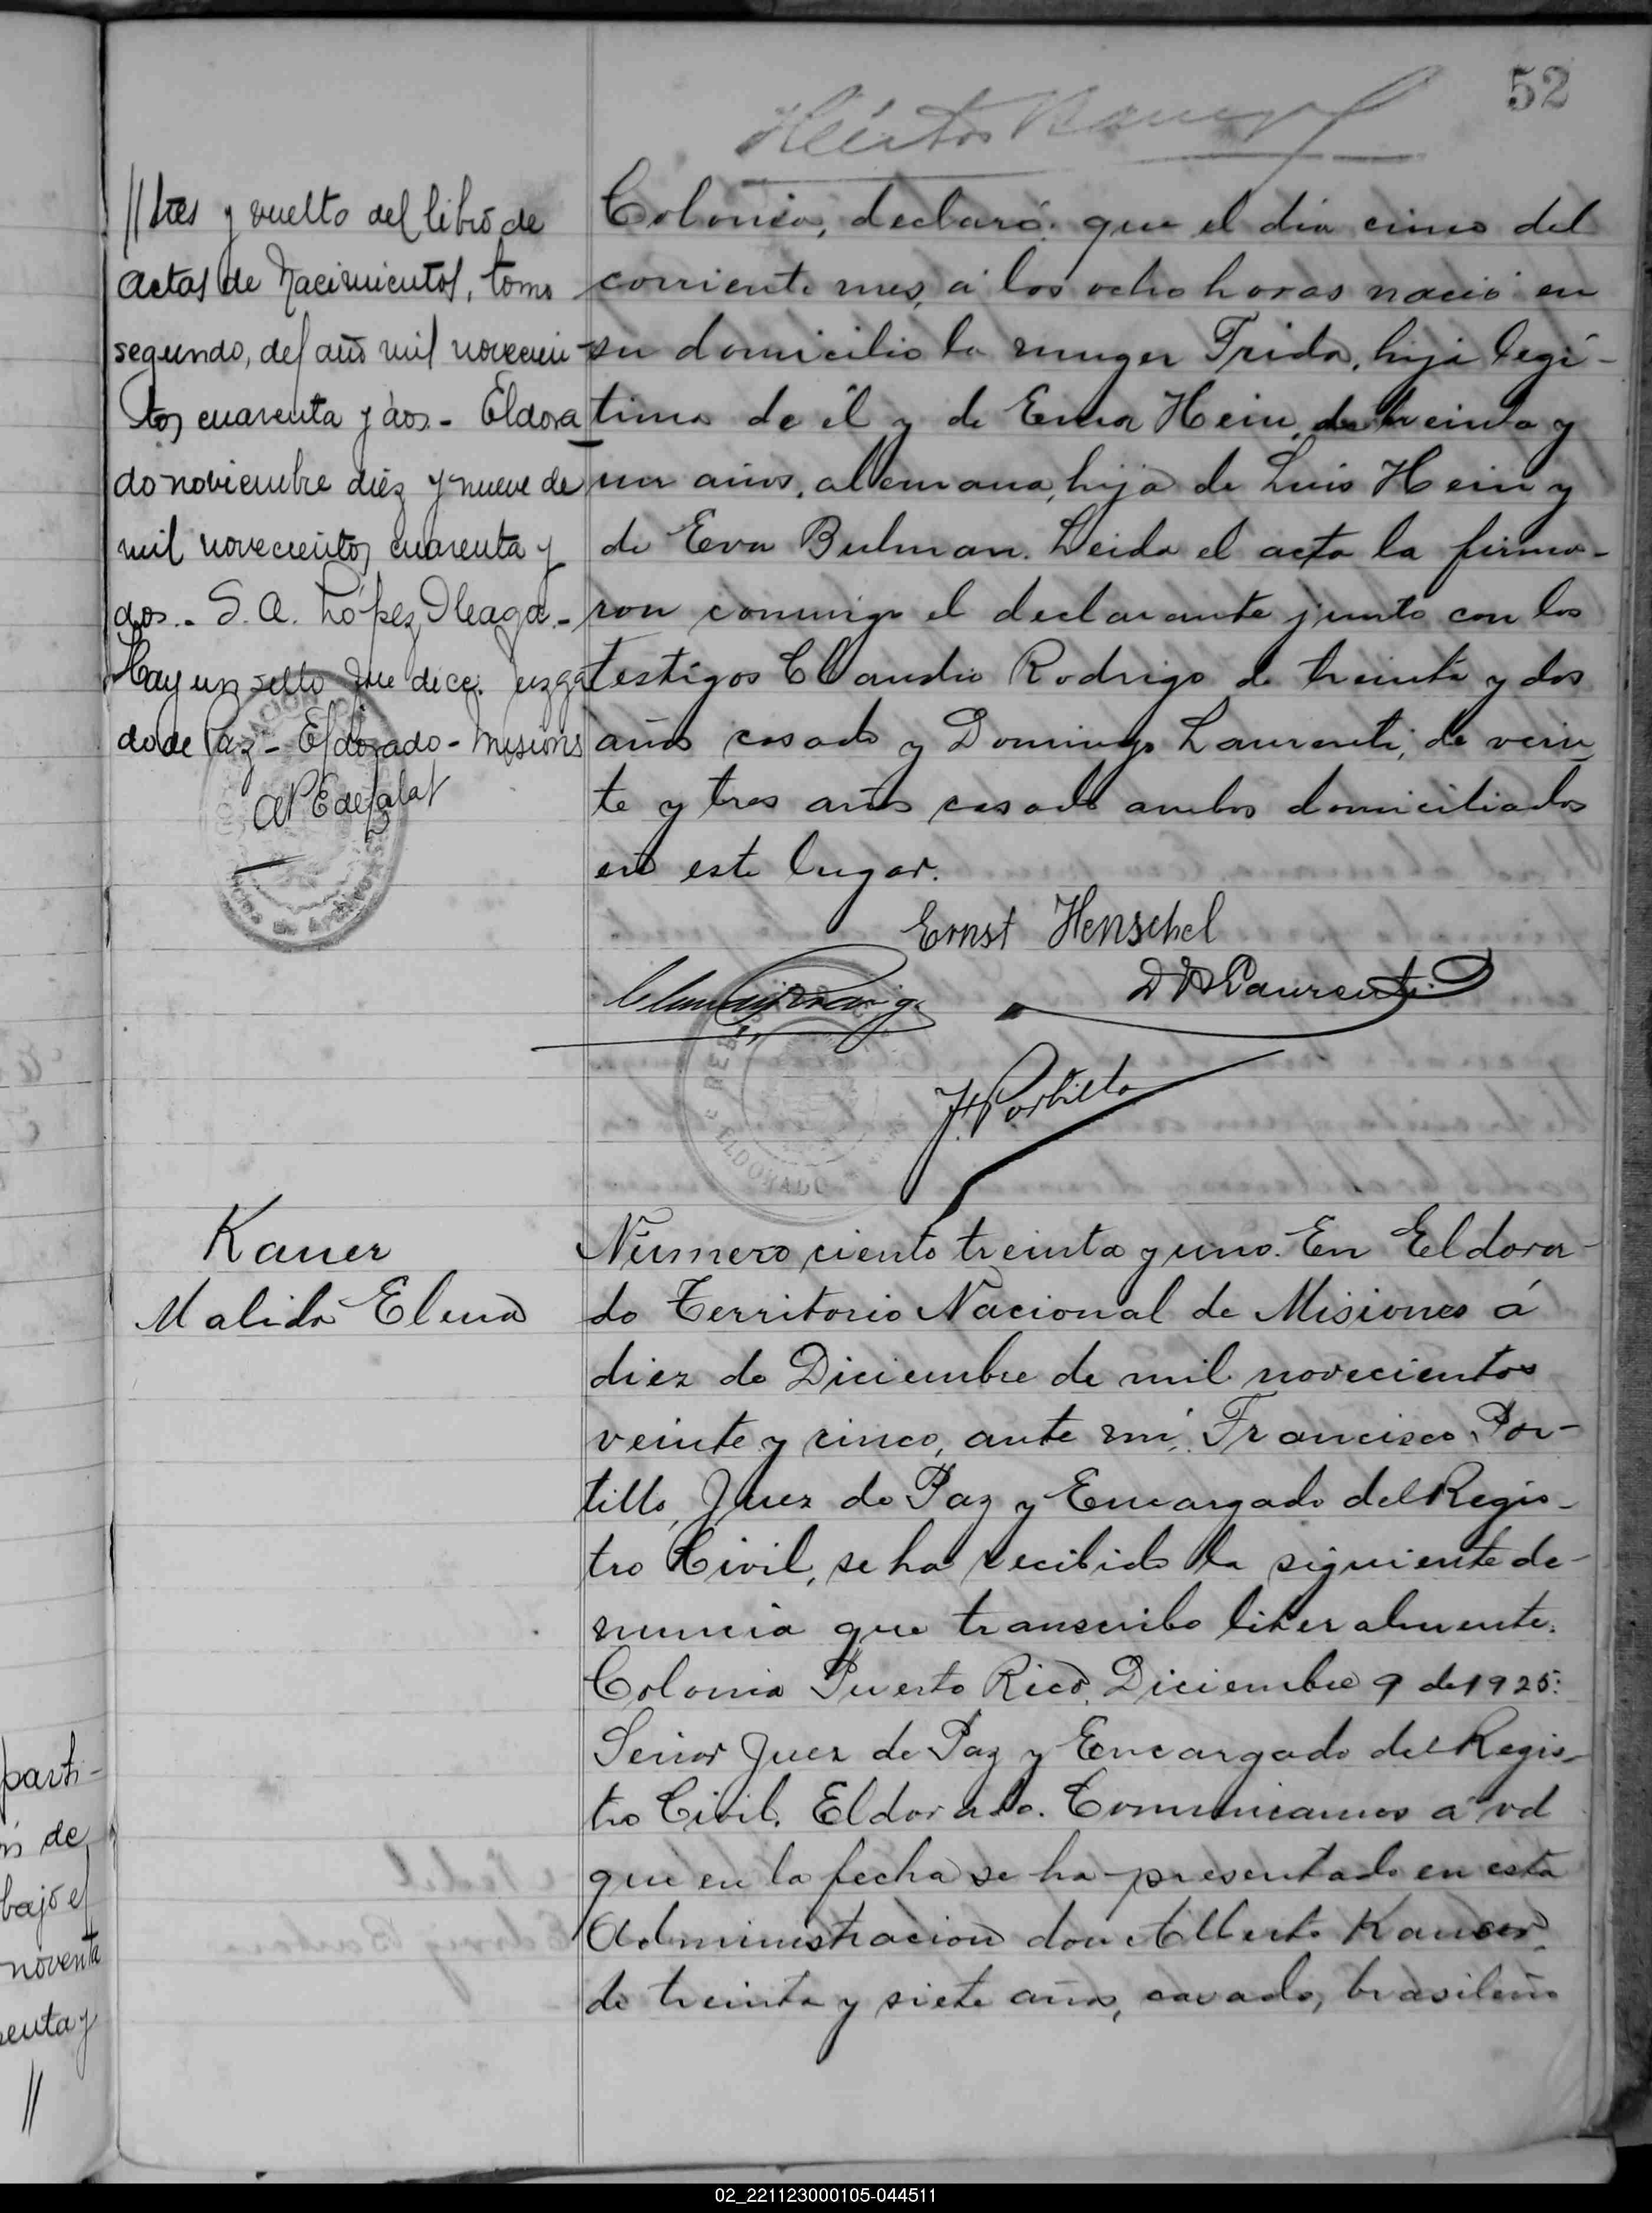 52
//tres y vuelto del libro de
actas de Nacimientos, tomo
segundo, del año mil novecien-
tos cuarenta y dos.- Eldora
do noviembre diez y nueve de
mil novecientos cuarenta y
dos.- S. A. López Oleaga.-
Hay un sello que dice: Juzga
do de Paz - Eldorado - Misions
Colonia, declaró: que el dia cinco del
corriente mes, á las ocho horas nació en
su domicilio la muger Frida, hija legi-
tima de él y de Ema Hein, de treinta y
un años, alemana, hija de Luis Hein y
de Eva Bulman. Leida el acta la firma-
ron conmigo el declarante junto con los
testigos Claudio Rodrigo de treinta y dos
años casado y Domingo Laurenti, de vein
te y tres años casado ambos domiciliados
en este lugar.
Ernst Henschel
D Laurenti
F. Portillo
ELDORADO
Kaner
Malida Elena
Número ciento treinta y uno. En Eldora-
do Territorio Nacional de Misiones á
diez de Diciembre de mil novecientos
veinte y cinco, ante mí, Francisco Por-
tillo, Juez de Paz y Encargado del Regis-
tro Civil, se ha recibido la siguiente de-
nuncia que transcribo literalmente:
Colonia Puerto Rico, Diciembre 9 de 1925:
Señor Juez de Paz y Encargado del Regis-
tro Civil, Eldorado. Comunicamos á vd
que en la fecha se ha presentado en esta
Administracion don Alberto Kaner
de treinta y siete años, casado, brasileño
parti-
de
bajo el
noventa
enta y
//
02_221123000105-044511